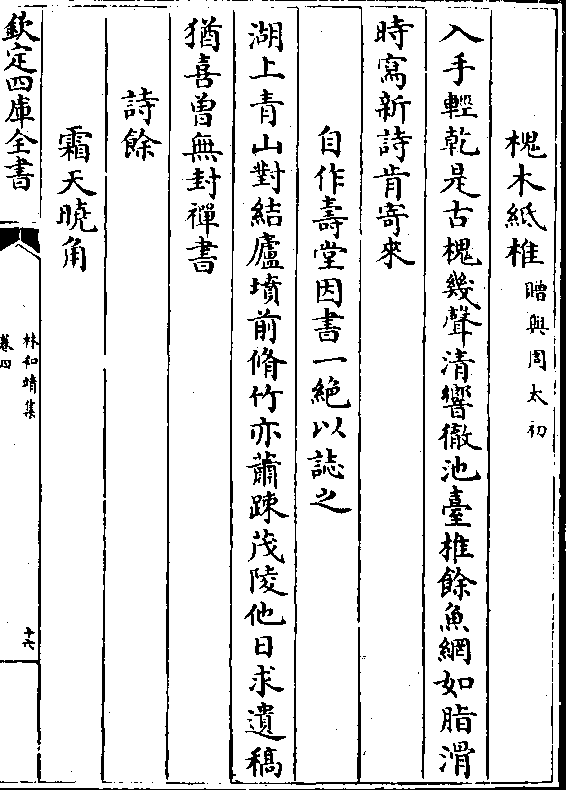 槐木紙椎贈與周太初
入手輕乾是古槐幾聲清響徹池臺椎餘魚網如脂滑
時寫新詩肯寄來
自作壽堂因書一絶以誌之
湖上青山對結廬墳前脩竹亦蕭踈茂陵他日求遺稿
猶喜曾無封禪書
詩餘
霜天曉角
欽定四庫全書
林和靖集
卷四
十六